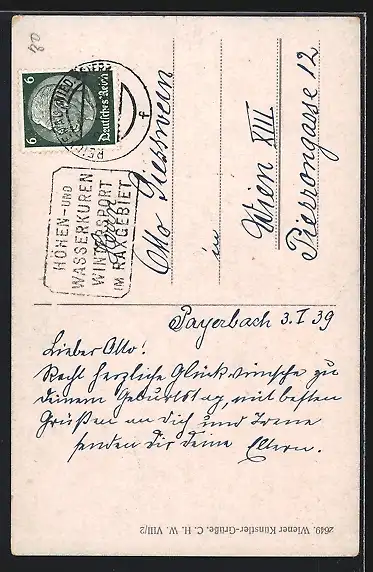 80
6
6
Deutsches Reich
HÖHEN- UND
WASSERKUREN
WINTERSPORT
IM RAXGEBIET
Herrn
Otto
in
Wien XIII.
Pierrongasse 12
Payerbach 3. I 39
Lieber Otto!
Recht herzliche Glückwünsche zu
deinem Geburtstag, mit besten
Grüßen an dich und Irene
senden dir deine Eltern.
2649. Wiener Künstler-Grüße, C. H. W. VIII/2